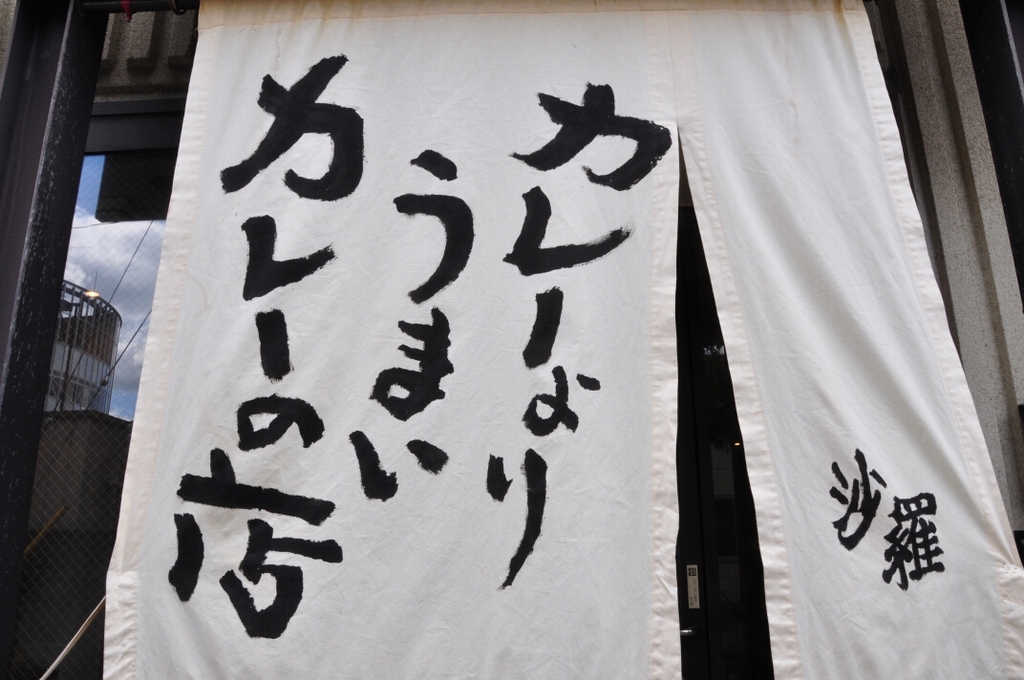 カレーより
うまい
カレーの店
沙羅